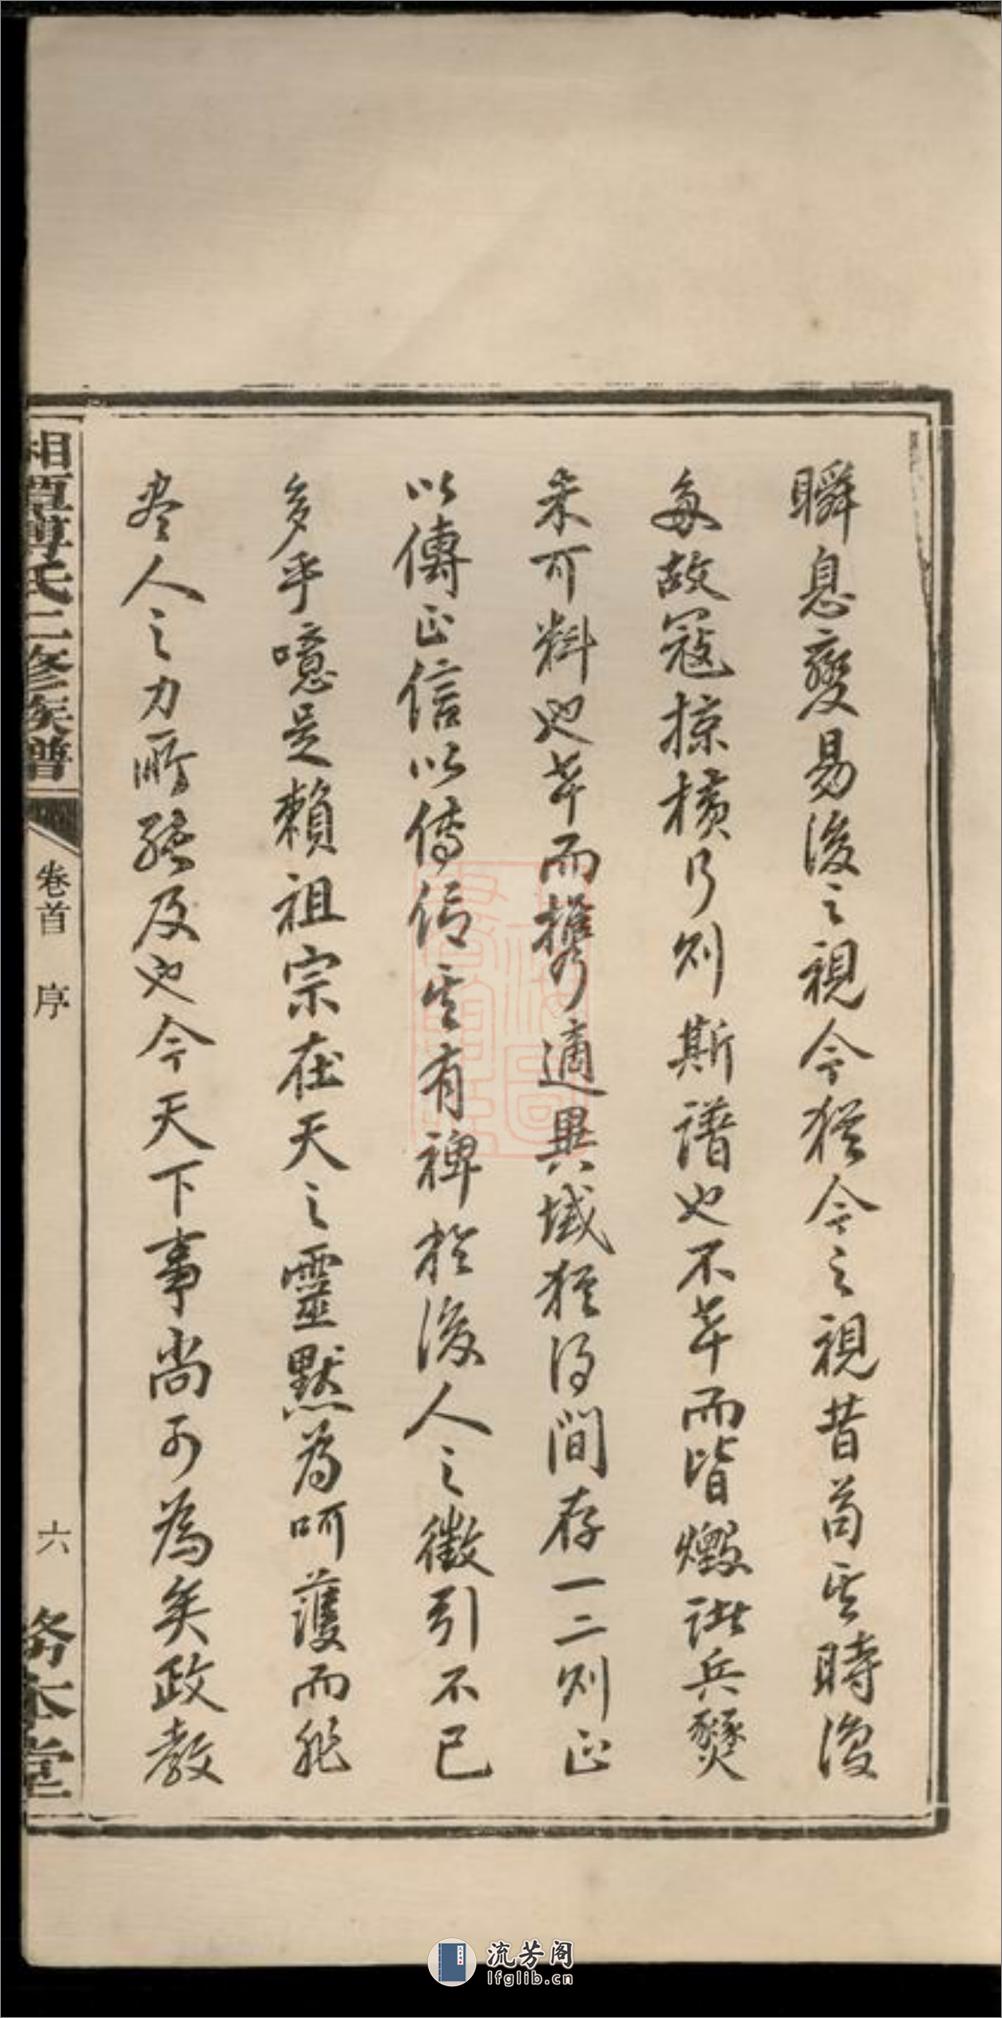 瞬息變易後之視今猶今之視昔茍其時復
多故冦掠橫行則斯譜也不幸而皆燬諸兵燹
未可料也幸而攜適異域猶得間存一二則正
以傳正信以傳信其有裨於後人之徵引不已
多乎噫是賴祖宗在天之靈默為呵護而非
盡人之力所能及也今天下事尚可為矣政教
相潭傅氏二修族譜
卷首 序
六
務本堂
流芳阁
lfglib.cn